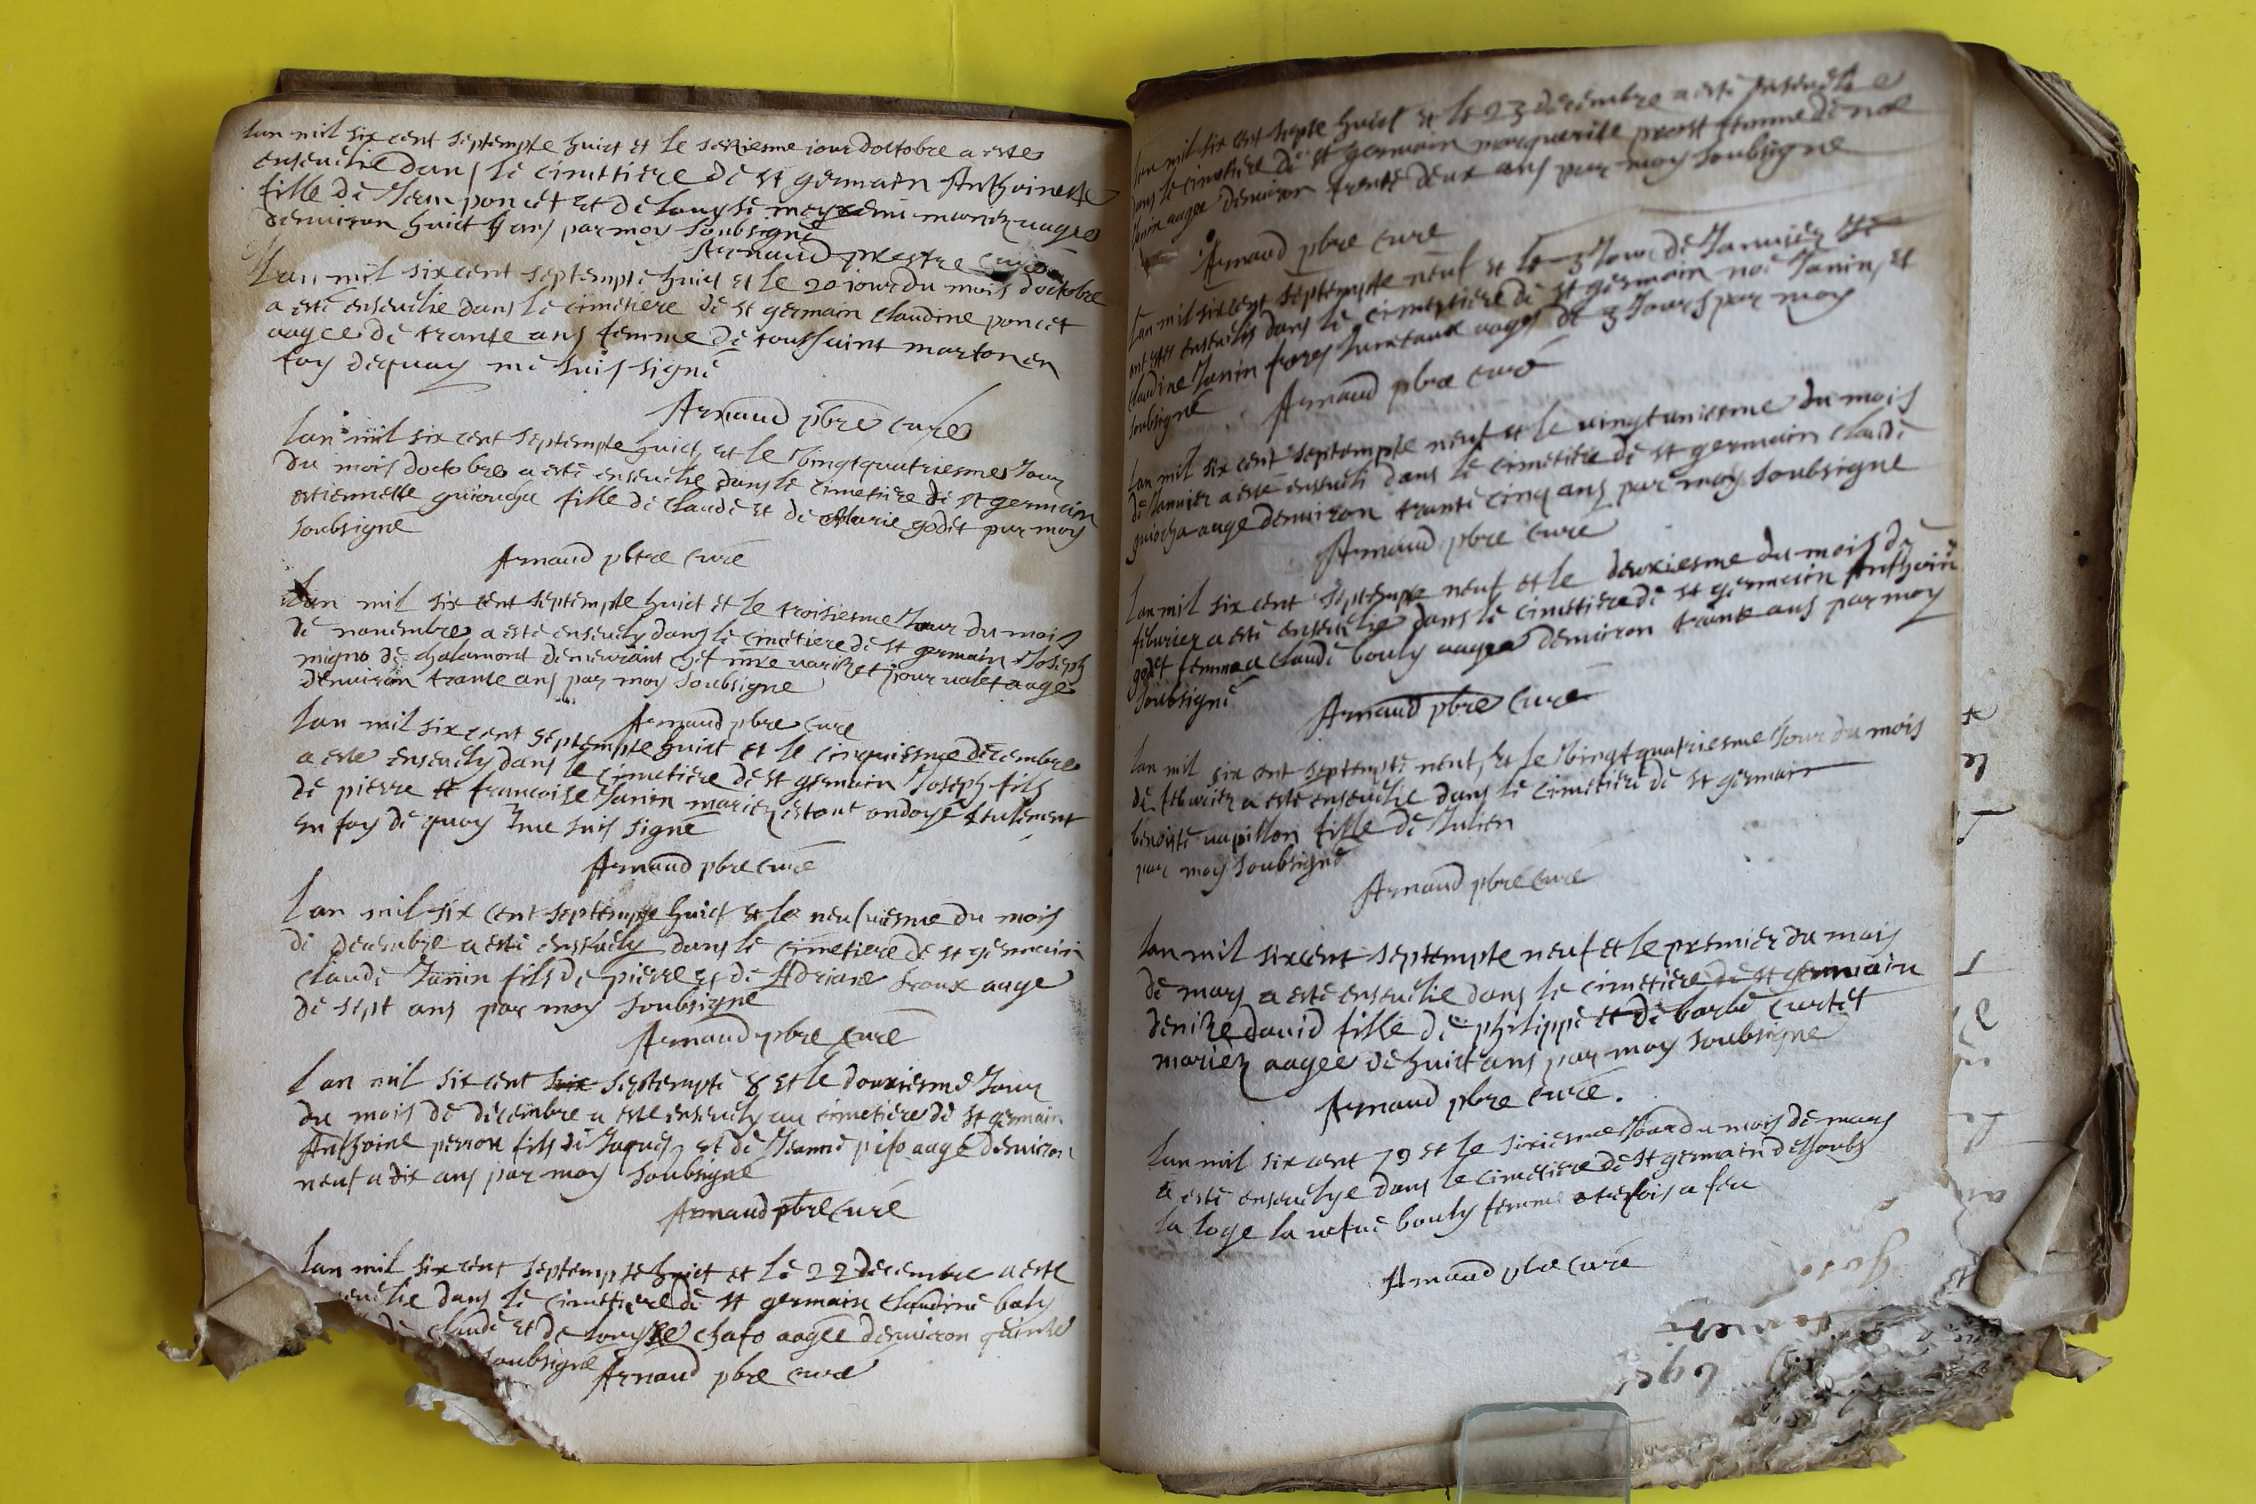 Lan mil six cent septempte huict et le seziesme iour doctobre a este
ensevelie dans le cimetiere de st germain Anthoinette
fille de Jean poncet et de Louyse mariez aagee
denviron huict ans par moy soubsigne
Arnaud prestre curé
Lan mil six cent septempte huict et le 20 iour du mois doctobre
a esté ensevelie dans le cimetiere de st germain claudine poncet
aagee de trante ans femme de toussaint marton en
foy dequoy me suis signé
Arnaud pbre curé
Lan mil six cent septempte huict et le vingtquatriesme Jour
du mois doctobre a esté ensevelie dans le cimetiere de st germain
estiennette guiocha fille de claude et de Marie godet par moy
soubsigne
Arnaud pbtre curé
Lan mil six cent septempte huict et le troisiesme Jour du mois
de novembre a esté ensevely dans le cimetiere de st germain Joseph
migno de chalamont demeurant chez pour valet aage
denviron trante ans par moy soubsigne
Arnaud pbre curé
Lan mil six cent septempte huict et le cinquiesme decembre
a este ensevely dans le cimetiere de st germain Joseph fils
de pierre et francoise Janin mariez estant ondoyé seulement
en foy de quoy Jme suis signé
Arnaud pbre curé
Lan mil six cent septempte huict et le neufviesme du mois
de decembre a esté ensevely dans le cimetiere de st germain
claude Janin fils de pierre et de Adriane aage
de sept ans par moy soubsigne
Arnaud pbre curé
Lan mil six cent six septempte 8 et le douxiesme Jour
du mois de decembre a este ensevely au cimetiere de st germain
Anthoine perron fils de Jaques et de Jeanne piso aagé denviron
neuf a dix ans par moy soubsigne
Arnaud pbre curé
Lan mil six cent septempte huict et le 22 decembre a esté
dans le cimetiere de st germain claudine boly
de claude et de Louyse chafo aagée denviron quinze
soubsigne
Arnaud pbre curé
Lan mil six cent septe huict et le 23 decembre a esté ensevelie
dans le cimetiere de st germain marguerite prost femme de noe
Janin aagee denviron trente deux ans par moy soubsigne
Arnaud pbre curé
Lan mil six cent septempte neuf et le 3 Jour de Janvier
ont estes ensevelis dans le cimeptiere de st germain noe Janin et
claudine Janin freres Jumeaux aages de 3 Jours par moy
soubsigné
Arnaud pbre curé
Lan mil six cent septempte neuf et le vingtuniesme du mois
de Janvier a esté enseveli dans le cimetiere de st germain claude
guiocha aage denviron trante cinq ans par moy soubsigne
Arnaud pbre curé
Lan mil six cent septempte neuf et le deuxiesme du mois de
febvrier a esté ensevelie dans le cimetiere de st germain Anthoin
godet femme a claude bouly aagee denviron trante ans par moy
soubsigné
Arnaud pbre curé
Lan mil six cent septempte neuf et le vingtquatriesme Jour du mois
de febvrier a esté ensevelie dans le cimetiere de st germain
benoiste vapillon fille de Julien
par moy soubsigné
Arnaud pbre curé
Lan mil six cent septempte neuf et le premier du mois
de mars a esté ensevelie dans le cimetiere de st germain
denise david fille de philippe et de barbe curtet
mariez aagee de huict ans par moy soubsigne
Arnaud pbre curé.
Lan mil six cent 79 et le sixiesme Jour du mois de mars
a esté ensevelye dans le cimetiere de st germain desoubs
la loge la vefue bouly femme autrefois a feu
Arnaud pbre curé